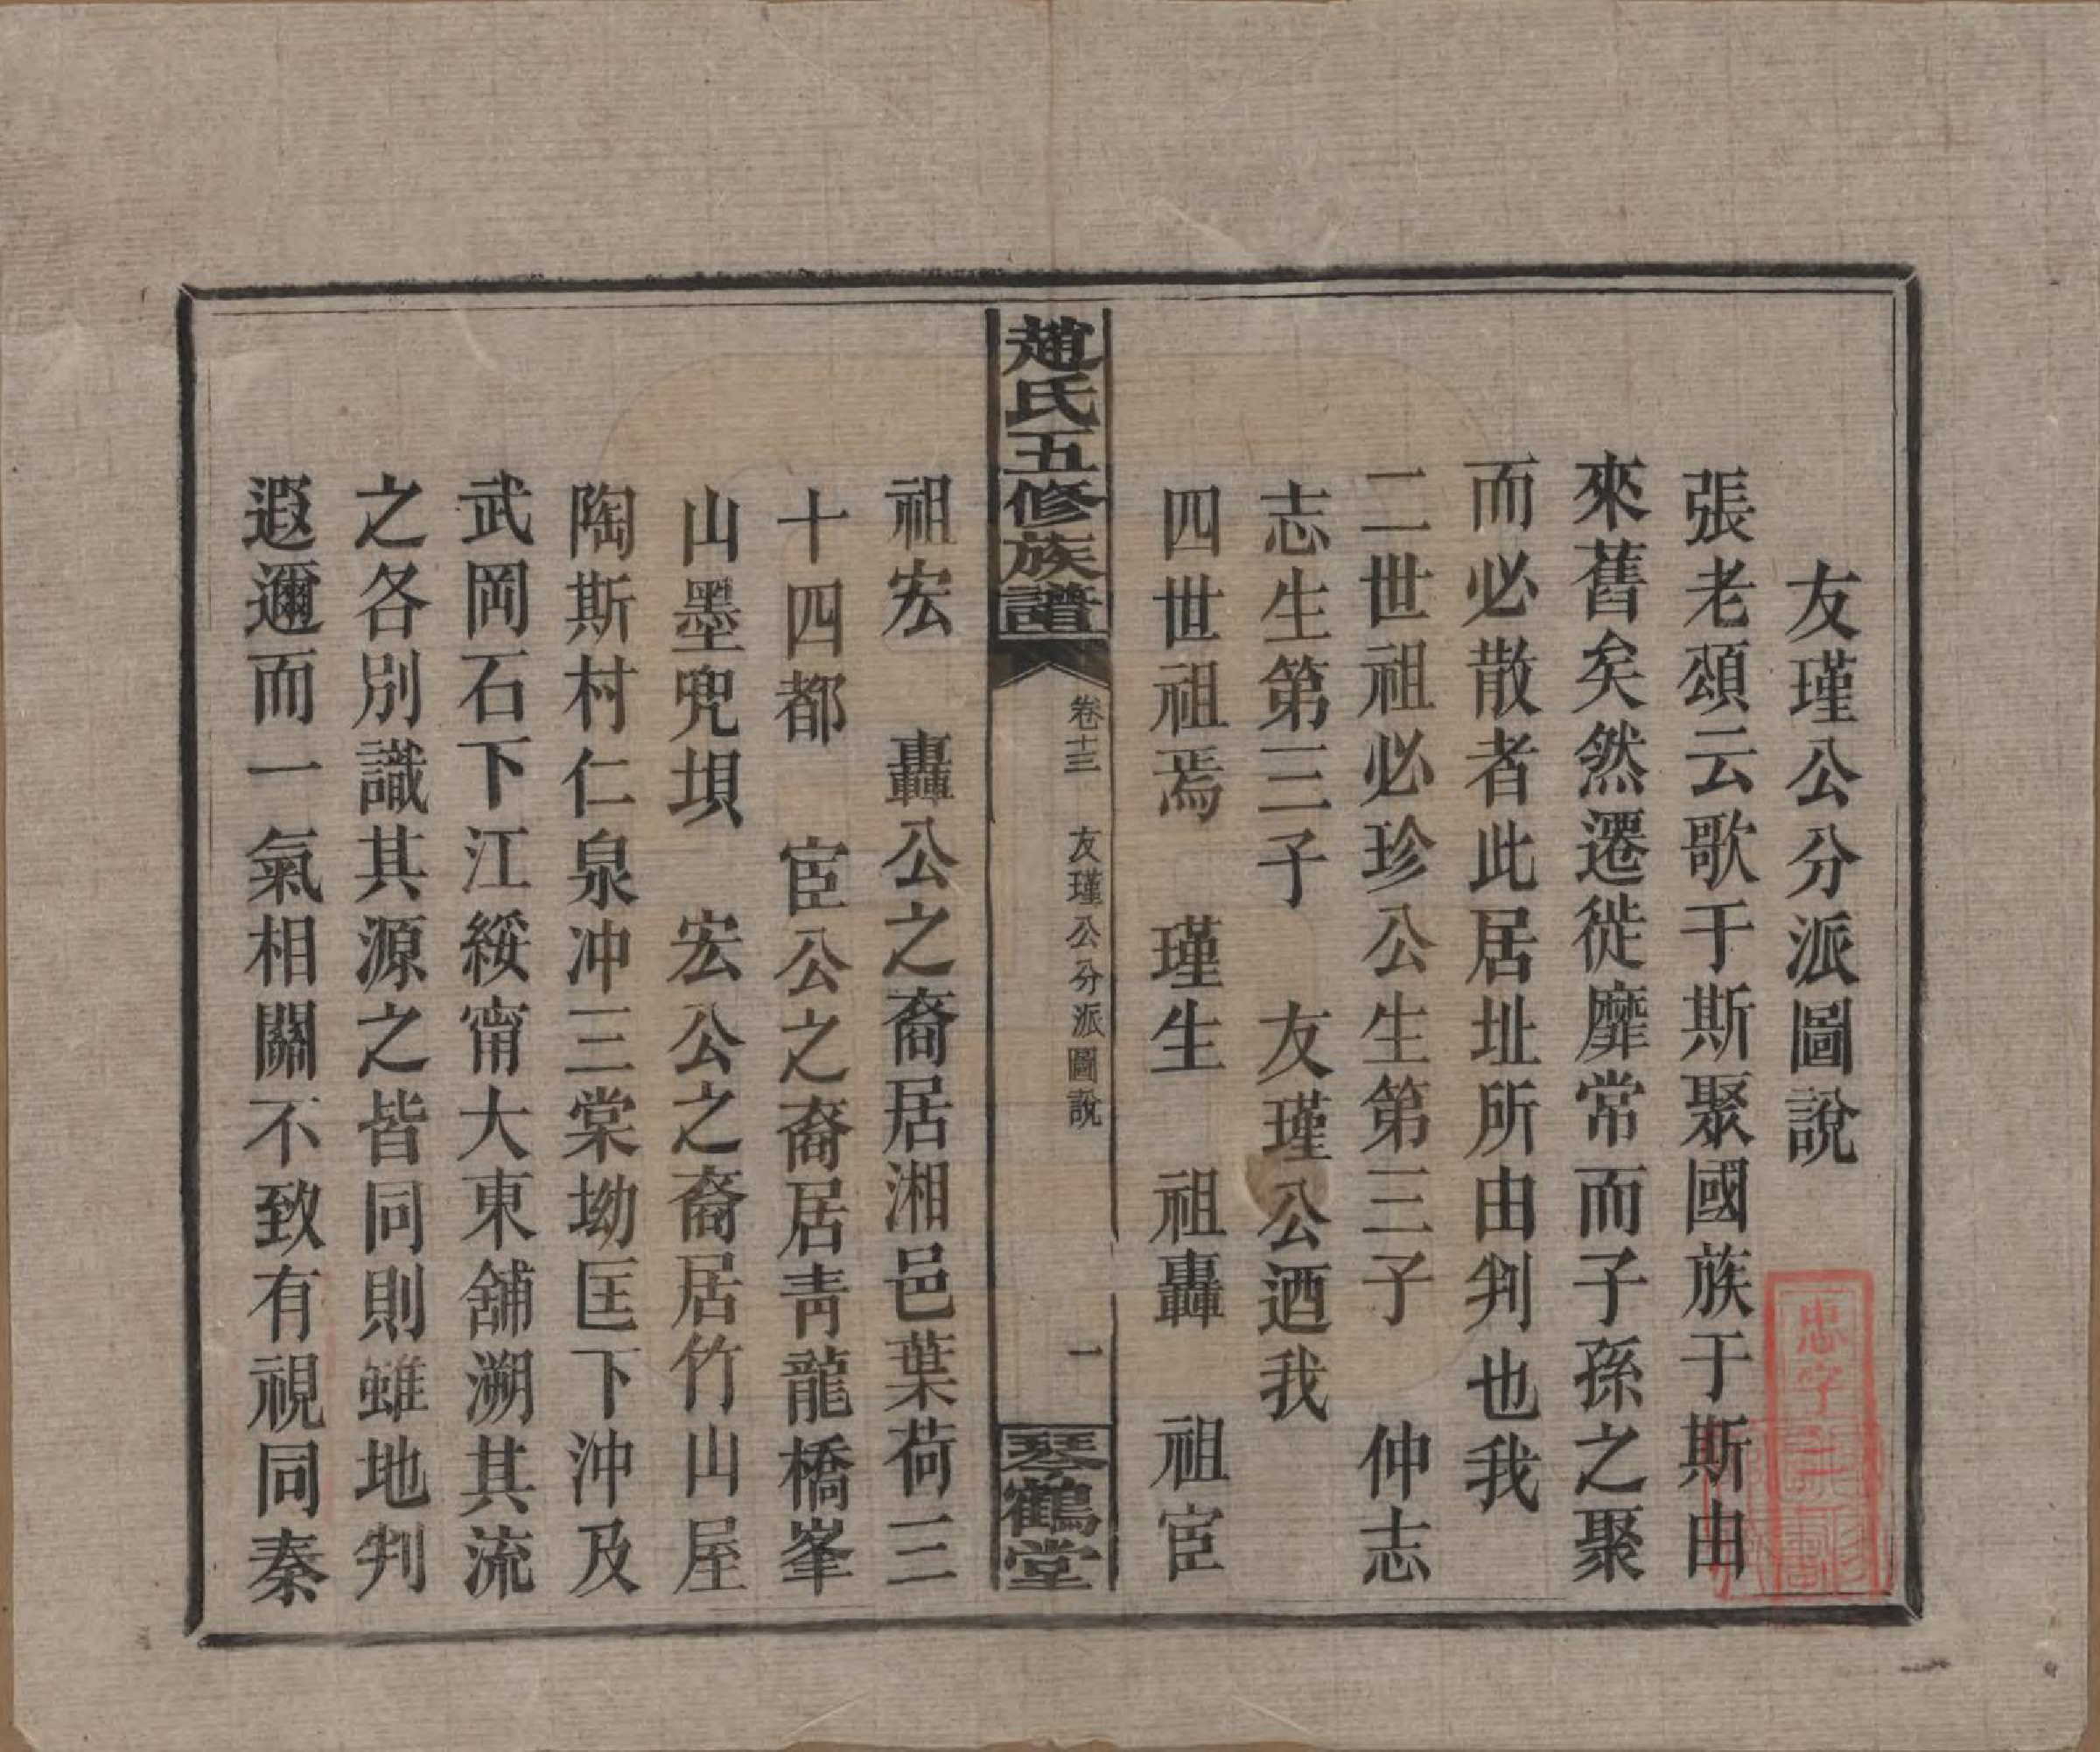 友瑾公分派圖說
張老頌云歌于斯聚國族于斯由
來舊矣然遷徙靡常而子孫之聚
而必散者此居址所由判也我
二世祖必珍公生第三子 仲志
志生第三子 友瑾公迺我
四世祖焉 瑾生 祖轟 祖宦
趙氏五修族譜
卷十三 友瑾公分派圖說 一
琴鶴堂
祖宏 轟公之裔居湘邑葉荷三
十四都 宦公之裔居靑龍橋峯
山墨兜垻 宏公之裔居竹山屋
陶斯村仁泉冲三棠坳匡下沖及
武岡石下江綏甯大東舖溯其流
之各別識其源之皆同則雖地判
遐邇而一氣相關不致有視同秦
忠字